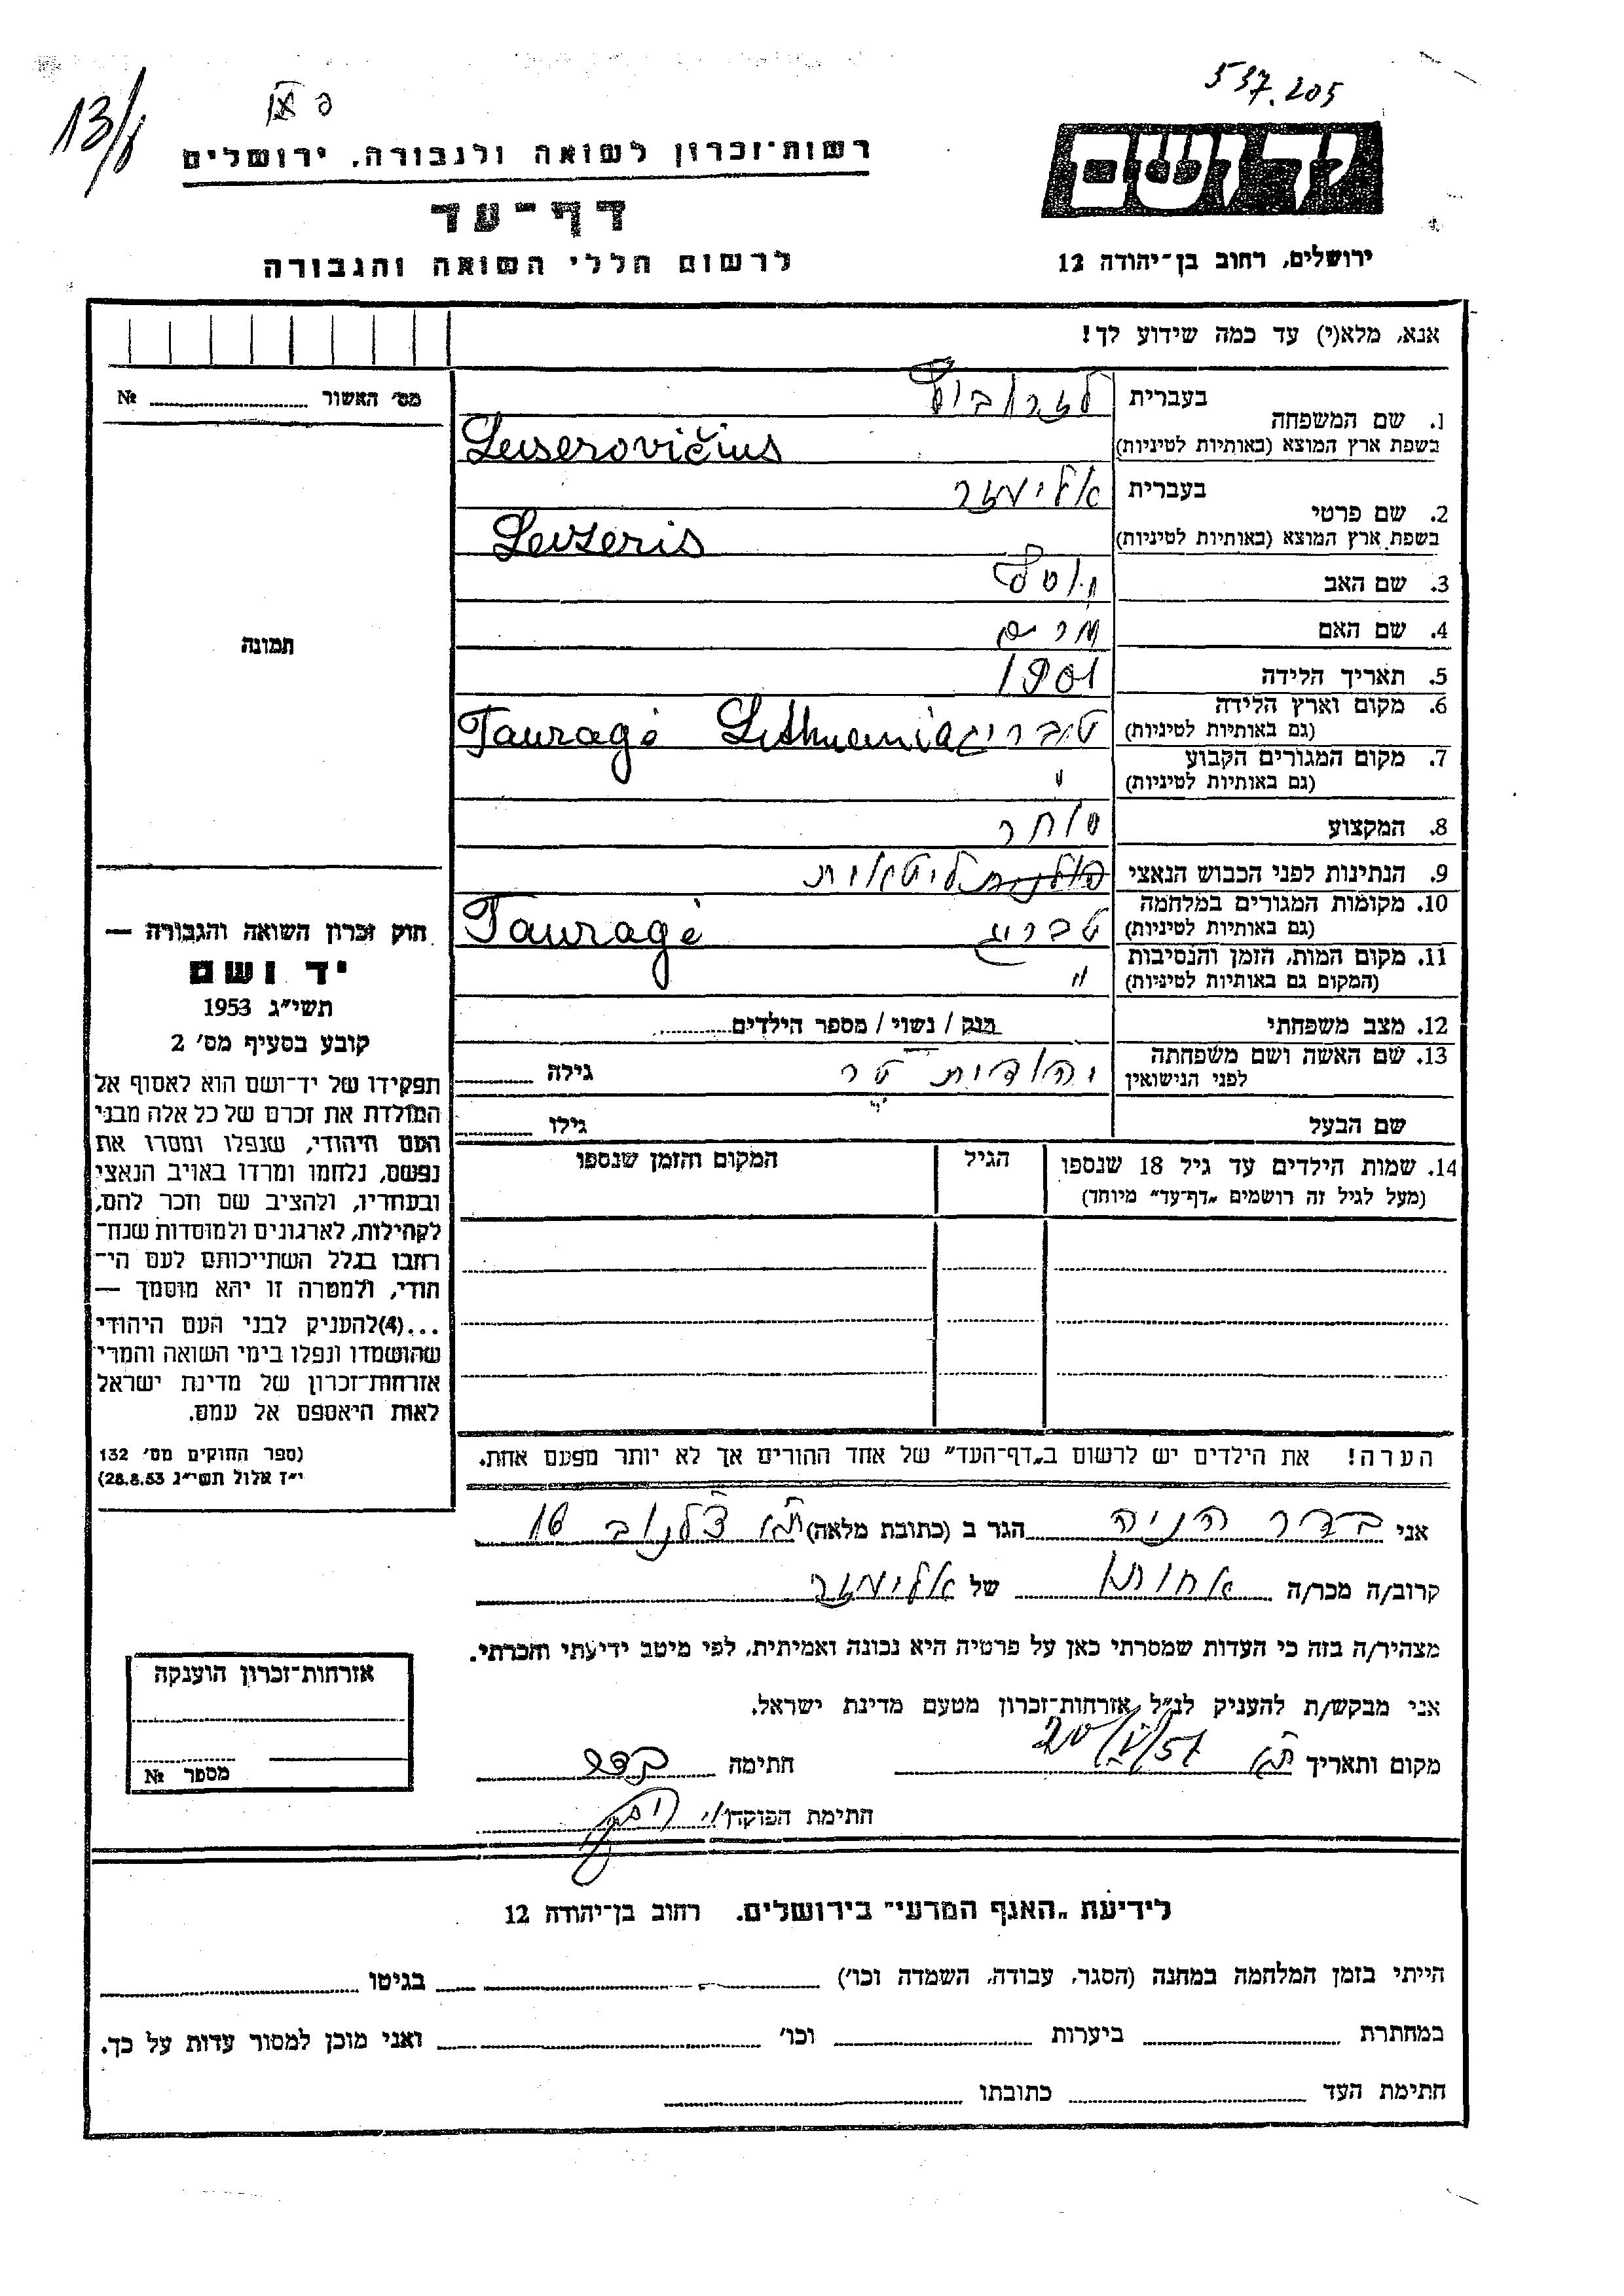 537.205
13/8
רשות־זכרון לשואה ולגבורה, ירושלים
יד ושם
דף־עד
לרשום חללי השואה והגבורה
ירושלים, רחוב בן־יהודה 12
אנא, מלא(י) עד כמה שידוע לך!
מס׳ האשור № 
1. שם המשפחה
בעברית
בשפת ארץ המוצא (באותיות לטיניות)
Leiserovičius
2. שם פרטי
בעברית אליעזר
בשפת ארץ המוצא (באותיות לטיניות)
Leizeris
3. שם האב יוסף
4. שם האם מרים
5. תאריך הלידה 1901
6. מקום וארץ הלידה
(גם באותיות לטיניות) טוברג Tauragė Lithuania
7. מקום המגורים הקבוע
(גם באותיות לטיניות) "
8. המקצוע סוחר
9. הנתינות לפני הכבוש הנאצי ליטאית
10. מקומות המגורים במלחמה
(גם באותיות לטיניות) טברג Tauragė
11. מקום המות, הזמן והנסיבות
(המקום גם באותיות לטיניות) "
12. מצב משפחתי רווק / נשוי / מספר הילדים
13. שם האשה ושם משפחתה
לפני הנישואין יהודית גילה
שם הבעל גילו
14. שמות הילדים עד גיל 18 שנספו
(מעל לגיל זה רושמים „דף־עד” מיוחד)
הגיל
המקום והזמן שנספו
תמונה
חוק זכרון השואה והגבורה —
יד ושם
תשי״ג 1953
קובע בסעיף מס׳ 2
תפקידו של יד־ושם הוא לאסוף אל
המולדת את זכרם של כל אלה מבני
העם היהודי, שנפלו ומסרו את
נפשם, נלחמו ומרדו באויב הנאצי
ובעוזריו, ולהציב שם וזכר להם,
לקהילות, לארגונים ולמוסדות שנח־
רבו בגלל השתייכותם לעם הי־
הודי, ולמטרה זו יהא מוסמך —
...(4) להעניק לבני העם היהודי
שהושמדו ונפלו בימי השואה והמרי
אזרחות־זכרון של מדינת ישראל
לאות היאספם אל עמם.
(ספר החוקים מס׳ 132
י״ז אלול תשי״ג 28.8.53)
הערה! את הילדים יש לרשום ב„דף־העד” של אחד ההורים אך לא יותר מפעם אחת.
אני בדר הניה הגר ב (כתובת מלאה) ת״א צ׳לנוב 16
קרוב/ה מכר/ה אחותו של אליעזר
מצהיר/ה בזה כי העדות שמסרתי כאן על פרטיה היא נכונה ואמיתית, לפי מיטב ידיעתי והכרתי.
אני מבקש/ת להעניק לנ״ל אזרחות־זכרון מטעם מדינת ישראל.
מקום ותאריך ת״א 20/V/57 חתימה בדר
חתימת הפוקד
אזרחות־זכרון הוענקה
מספר №
לידיעת „האגף המדעי” בירושלים. רחוב בן־יהודה 12
הייתי בזמן המלחמה במחנה (הסגר, עבודה, השמדה וכו׳) בגיטו
במחתרת ביערות וכו׳ ואני מוכן למסור עדות על כך.
חתימת העד כתובתו